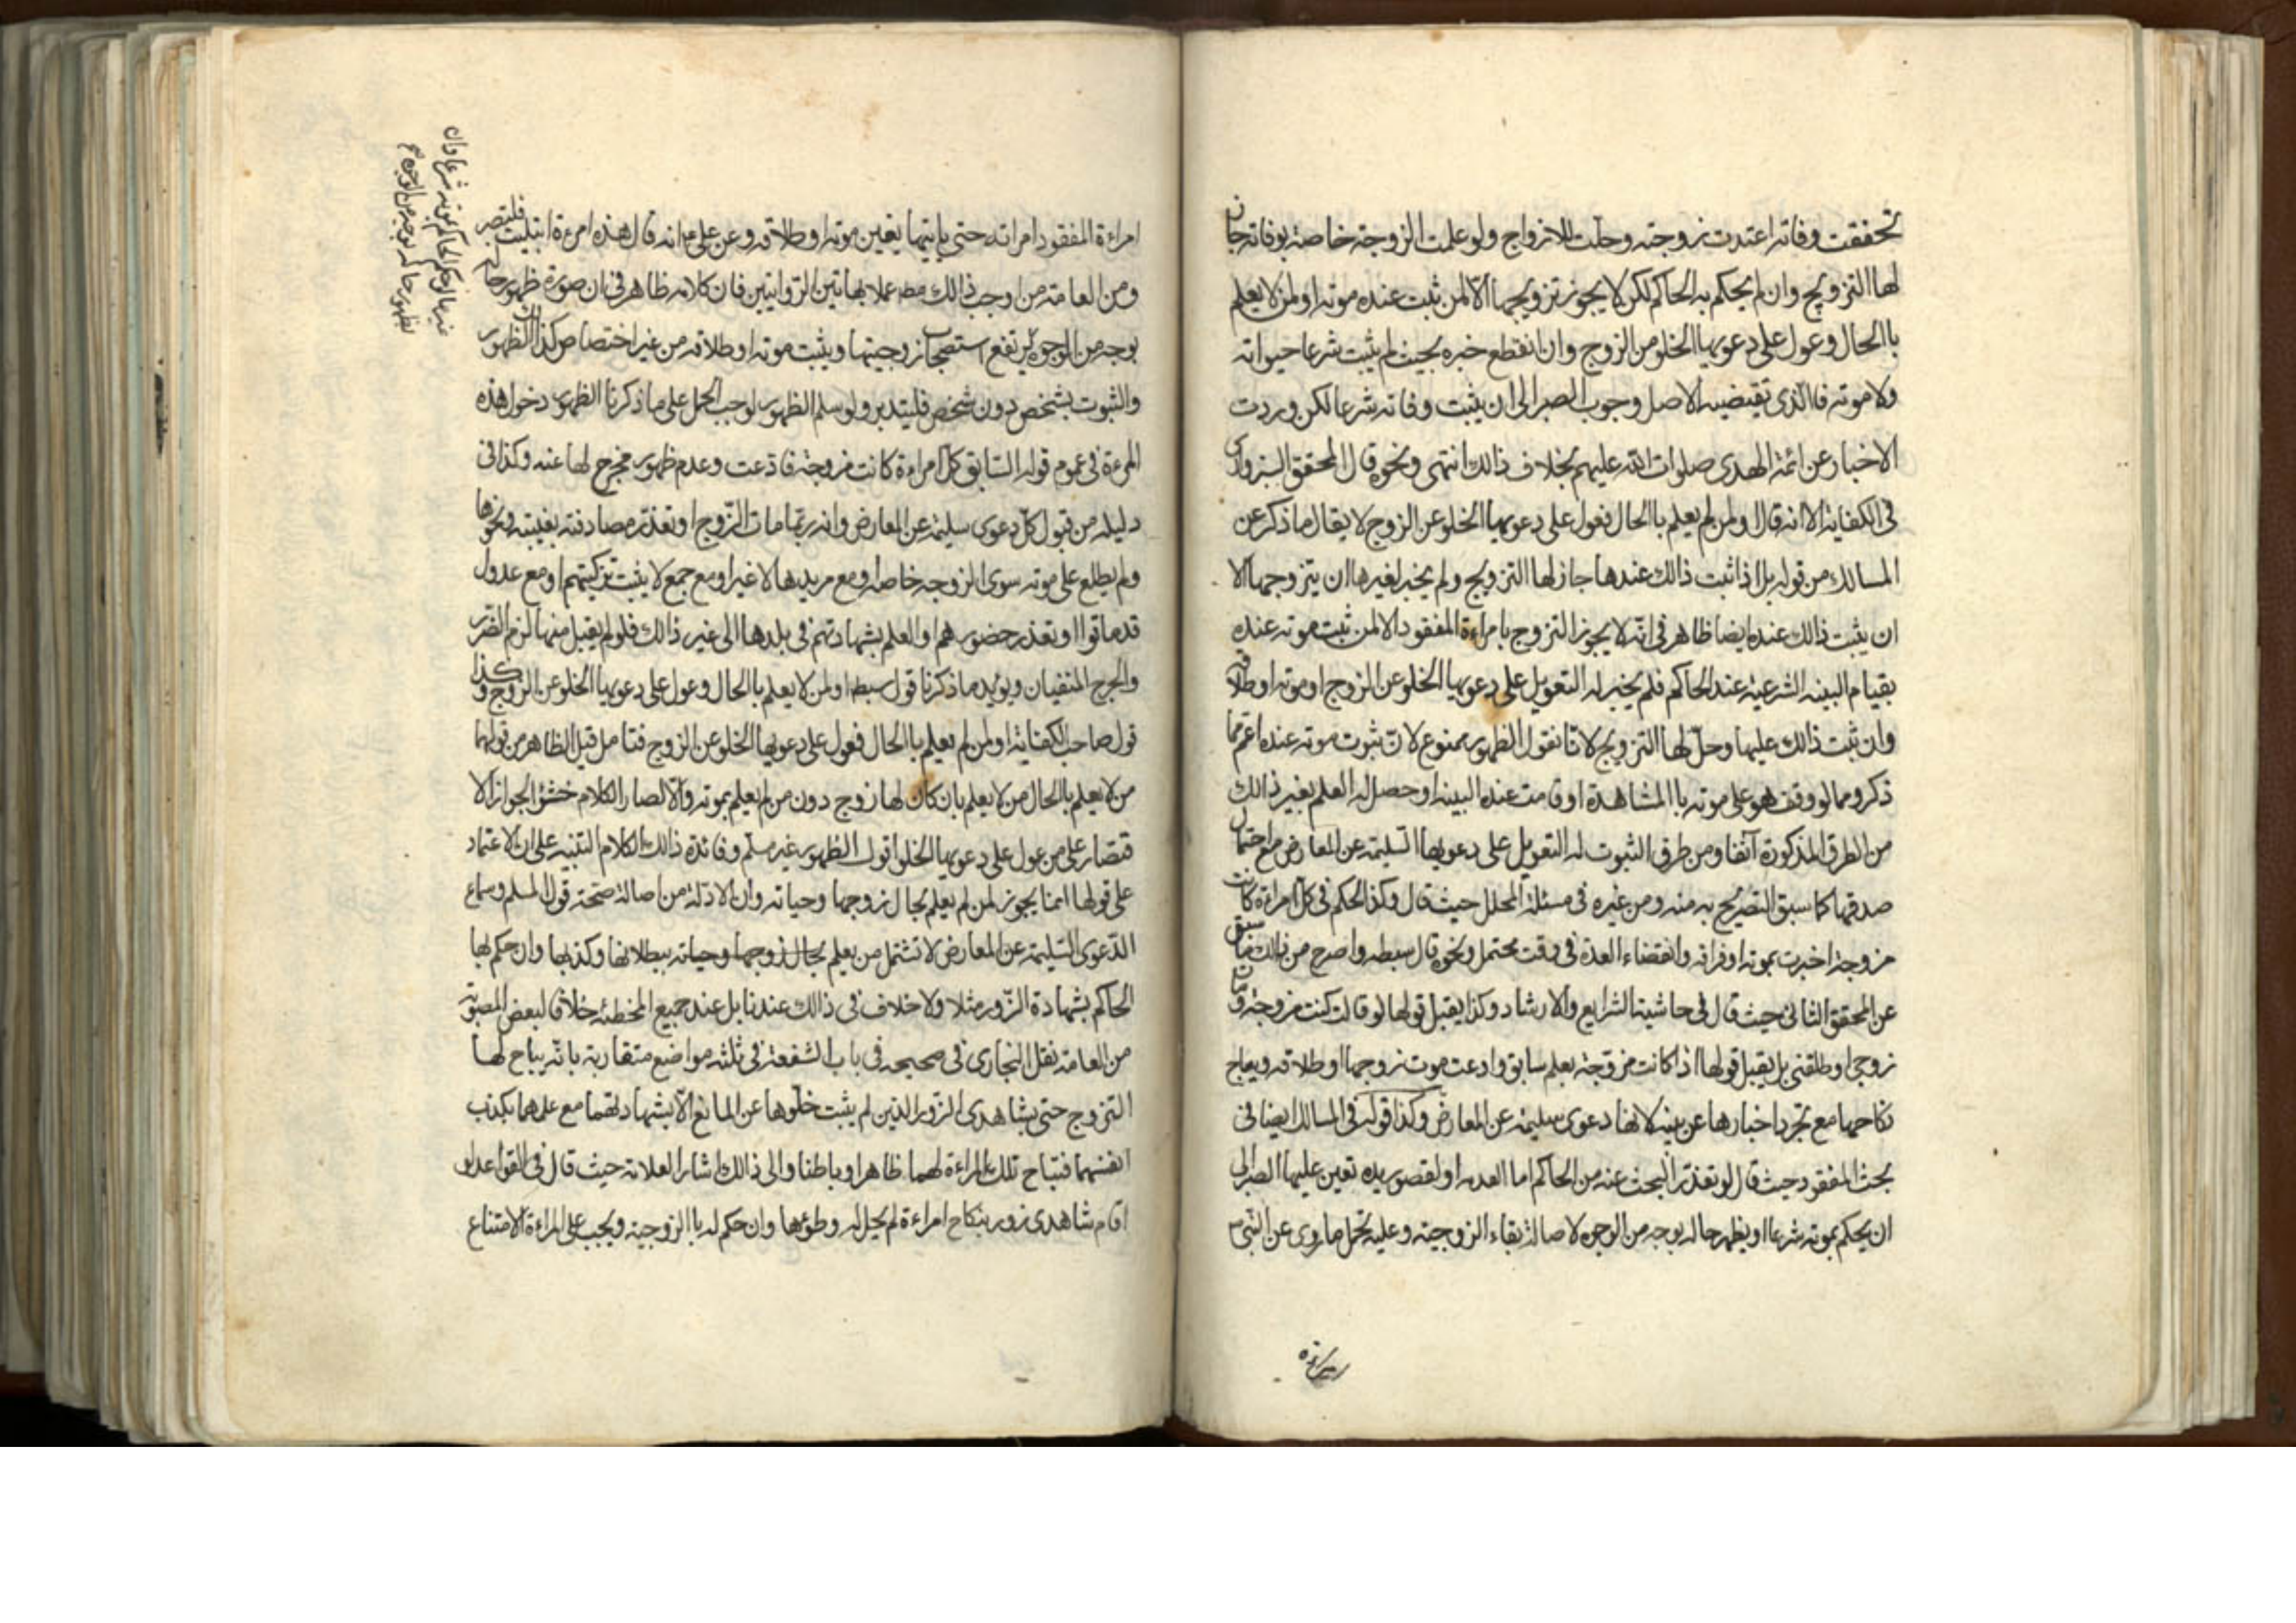 تحققت وفاته اعتدت زوجته وحلت للازواج ولو علمت الزوجة خاصة بوفاته جاز
لها التزويج وان لم يحكم به الحاكم لكن لا يجوز تزويجها الا لمن ثبت عنده موته او لمن لا يعلم
باالحال وعول على دعويها الخلو من الزوج وان انقطع خبره بحيث لم يثبت شرعا حيواته
ولا موته فاالذى تقتضيه الاصل وجوب الصبر الى ان يثبت وفاته شرعا لكن وردت
الاخبار عن ائمة الهدى صلوات الله عليهم بخلاف ذالك انتهى ونحوه قال المحقق السبزوارى
فى الكفاية الا انه قال او لمن لم يعلم باالحال فعول على دعويها الخلو عن الزوج لا يقال ما ذكر عن
المسالك من قوله بل اذا ثبت ذالك عندها جاز لها التزويج ولم يخبر لغيرها ان يتزوجها الا
ان يثبت ذالك عنده ايضا ظاهر فى انه لا يجوز التزوج بامراءة المفقود الا لمن ثبت موته عنده
بقيام البينه الشرعية عند الحاكم فلم يخبر له التعويل على دعويها الخلو عن الزوج او موته او طلاقه
وان ثبت ذالك عليها وحل لها التزويج لانا نقول الظهور ممنوع لان ثبوت موته عنده اعم مما
ذكر ومما لو وقف هو على موته باالمشاهدة او قامت عنده البينه او حصل له العلم بغير ذالك
من الطرق المذكورة آنفا ومن طرق الثبوت له التعويل على دعويها السليمة عن المعارض مع احتمال
صدقها كما سبق التصريح به منه ومن غيره فى مسئلة المحلل حيث قال وكذا الحكم فى كل امراءة كانت
مزوجة اخبرت بموته او فراقه وانقضاء العدة فى وقت محتمل ونحوه قال سبطه واصرح من ذالك ما سبق
عن المحقق الثانى حيث قال فى حاشية الشرايع والارشاد وكذا يقبل قولها لو قالت كنت مزوجة ومات
زوجى او طلقنى بل يقبل قولها اذا كانت مزوجة بعلم سابق وادعت موت زوجها او طلاقه ويباح
نكاحها مع تجرد اخبارها عن بينه لانها دعوى سليمة عن المعارض وكذا قوله فى المسالك ايضا فى
بحث المفقود حيث قال لو تعذر البحث عنه من الحاكم اما لعدمه او لقصور يده تعين عليها الصبر الى
ان يحكم بموته شرعا او يظهر حاله بوجه من الوجوه لاصالة بقاء الزوجية وعليه يحمل ما روى عن النبى
امراءة المفقود امراته حتى ياتيها يقين موته او طلاقه وعن على ع انه قال هذه امرءة ابتليت فلتصبر
ومن العامة من اوجب ذالك مط عملا بهاتين الروايتين فان كلامه ظاهر فى ان صورة ظهور حاله
بوجه من الوجوه يرتفع استصحاب زوجيتها ويثبت موته او طلاقه من غير اختصاص كذالك الظهور
والثبوت بشخص دون شخص فليتدبر ولو سلم الظهور لوجب الحمل على ما ذكرنا لظهور دخول هذه
المرءة فى عموم قوله السابق كل امراءة كانت مزوجة فادعت وعدم ظهور مخرج لها عنه وكذا فى
دليله من قبول كل دعوى سليمة عن المعارض وانه ربما مات الزوج او تعذر مصادفته بغيبته ونحوها
ولم يطلع على موته سوى الزوجه خاصة او مع مريدها لا غير او مع جمع لا يثبت تزكيتهم او مع عدول
قد ماتوا او تعذر حضورهم او العلم بشهادتهم فى بلدها الى غير ذالك فلو لم يقبل منها لزم الضرر
والحرج المنفيان ويؤيد ما ذكرنا قول سبطه او لمن لا يعلم باالحال وعول على دعويها الخلو عن الزوج وكذا
قول صاحب الكفاية او لمن لم يعلم باالحال فعول على دعويها الخلو عن الزوج فتامل قيل الظاهر من قولهما
من لا يعلم باالحال من لا يعلم بان كان لها زوج دون من لم يعلم بموته والا لصار الكلام خشو الجواز الا
قتصار على من عول على دعويها الخلو اقول الظهور غير مسلم وفائدة ذالك الكلام التنبيه على ان الاعتماد
على قولها انما يجوز لمن لم يعلم بحال زوجها وحياته وان الادلة من اصالة صحة قول المسلم وسماع
الدعوى السليمة عن المعارض لا تشتمل من يعلم بحال زوجها وحياته ببطلانها وكذبها وان حكم لها
الحاكم بشهادة الزور مثلا ولا خلاف فى ذالك عندنا بل عند جميع المخطئة خلافا لبعض المصوبة
من العامة نقل البخارى فى صحيحه فى باب الشفعة فى ثلثه مواضع متقاربة بانه يباح لها
التزوج حتى بشاهدى الزور الذين لم يثبت خلوها عن المانع الا بشهادتهما مع علمهما بكذب
انفسهما فتباح تلك المراءة لهما ظاهرا وباطنا والى ذالك اشار العلامة حيث قال فى القواعد لو
اقام شاهدى زور بنكاح امراءة لم يحل له وطؤها وان حكم له باالزوجية ويجب على المراءة الامتناع